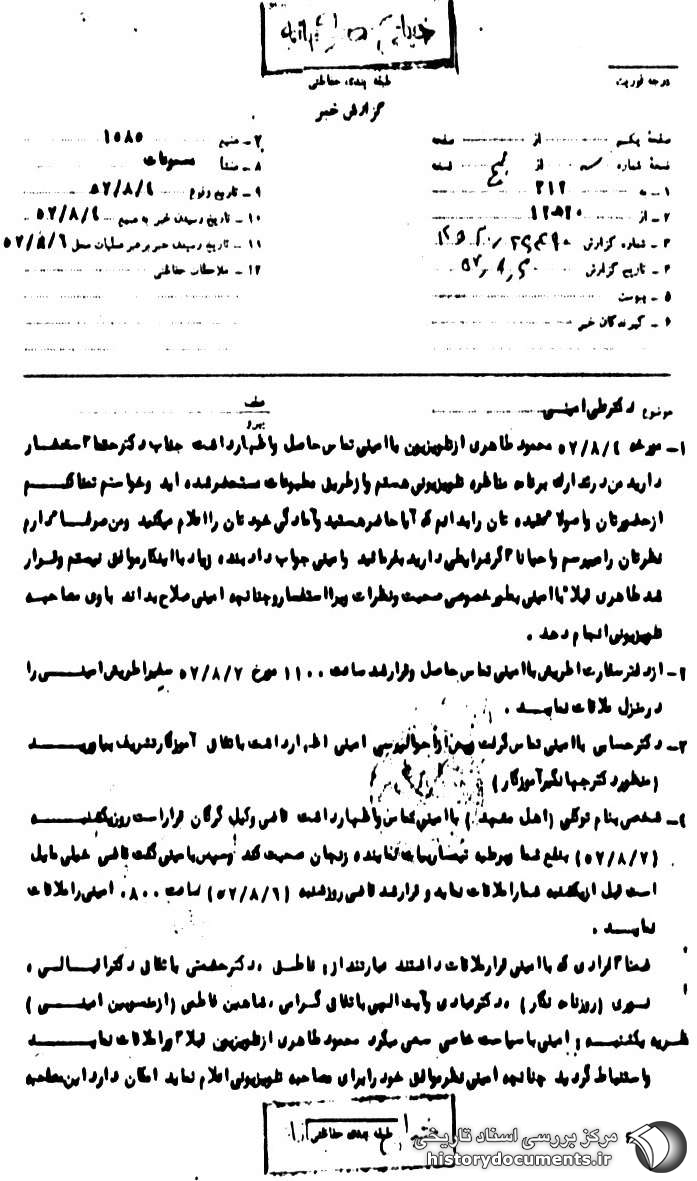 طبقه بندی حفاظتی
درجه فوریت
گزارش خبر
صفحهٔ یکم از صفحه
نسخهٔ شماره از نسخه
۱ - به ۳۱۲
۲ - از
۳ - شماره گزارش
۴ - تاریخ گزارش
۵ - پیوست
۶ - گیرندگان خبر
۷ - منبع ۱۵۸۵
۸ - منشأ مسموعات
۹ - تاریخ وقوع ۵۷/۸/٤
۱۰ - تاریخ رسیدن خبر به منبع ۵۷/۸/٤
۱۱ - تاریخ رسیدن خبر به رهبر عملیات محل ۵۷/۸/۶
۱۲ - ملاحظات حفاظتی
موضوع دکتر علی امینی
عطف
پیرو
۱- مورخه ۵۷/۸/٤ محمود طاهری از تلویزیون با امینی تماس حاصل و اظهار داشت جناب دکتر حتما استحضار
دارید من در تدارک برنامه مناظره تلویزیونی هستم و از طریق مطبوعات مستحضر شده اید و خواستم تقاضا کنم
از حضورتان و اصولا عقیده تان را بدانم که آیا حاضر هستید و آمادگی خودتان را اعلام میکنید و من صرفا دارم
نظرتان را میپرسم و احیانا اگر شرایطی دارید بفرمائید و امینی جواب داد بنده زیاد با اینکار موافق نیستم و قرار
شد طاهری قبلا با امینی بطور خصوصی صحبت و نظرات ویرا استفسار و چنانچه امینی صلاح بداند با وی مصاحبه
تلویزیونی انجام دهد .
۲- از دفتر سفارت اطریش با امینی تماس حاصل و قرار شد ساعت ۱۱۰۰ مورخ ۵۷/۸/۷ سفیر اطریش امینی را
در منزل ملاقات نماید .
۳- دکتر حسابی با امینی تماس گرفت و پس از احوالپرسی امینی اظهار داشت با اتفاق آموزگار تشریف بیاورید
(منظور دکتر جهانگیر آموزگار)
٤- شخصی بنام توکلی (اهل مشهد) با امینی تماس و اظهار داشت قاضی وکیل گرگان قرار است روز یکشنبه
(۵۷/۸/۷) بنفع شما و بر علیه نماینده زنجان صحبت کند و سپس با امینی گفت قاضی خیلی مایل
است قبل از یکشنبه شما را ملاقات نماید و قرار شد قاضی روز شنبه (۵۷/۸/۶) ساعت ۸۰۰ امینی را ملاقات
نماید .
ضمنا افرادی که با امینی قرار ملاقات داشتند عبارتند از ، فاطمی ، دکتر حشمتی با اتفاق دکتر ،
نوری (روزنامه نگار) ، دکتر صادی و آیت الهی با اتفاق گرامی ، شاهین فاطمی (از منسوبین امینی)
نظریه یکشنبه و امینی با سیاست خاصی سعی میکرد محمود طاهری از تلویزیون قبلا او را ملاقات نماید
و استنباط گردید چنانچه امینی نظر موافق خود را برای مصاحبه تلویزیونی اعلام نماید امکان دارد این مصاحبه
طبقه بندی حفاظتی
مرکز بررسی اسناد تاریخی
historydocuments.ir